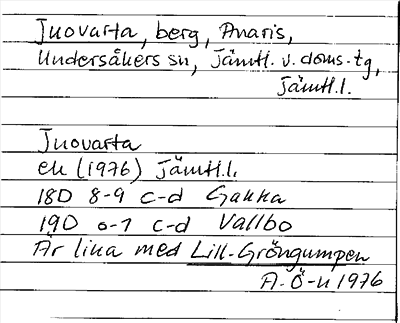 Juovarta, berg, Anaris,
Undersåkers sn, Jämtl. v. doms-tg,
Jämtl.l.
Juovarta
ek (1976) Jämtl.l.
18D 8-9 c-d Gakka
19D 0-1 c-d Vallbo
Är lika med Lill-Gröngumpen
A-Ö-n 1976